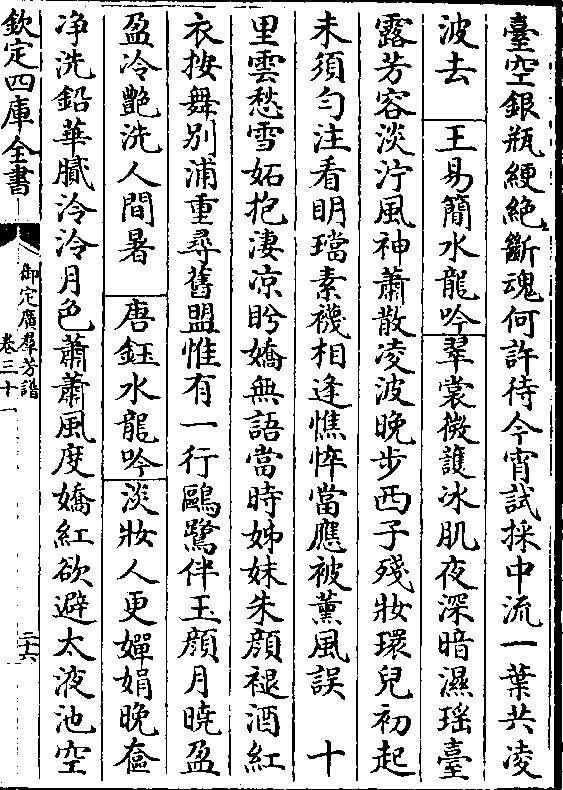 臺空銀瓶綆絶斷魂何許待今宵試採中流一葉共凌
波去　王易簡水龍吟翠裳微護冰肌夜深暗濕瑶臺
露芳容淡泞風神蕭散凌波晚步西子殘妝環兒初起
未須匀注看明璫素襪相逢憔悴當應被薰風誤　十
里雲愁雪妬抱淒凉盻嬌無語當時姊妹朱顔褪酒紅
衣按舞别浦重尋舊盟惟有一行鷗鷺伴玉顔月曉盈
盈冷艷洗人間暑　唐鈺水龍吟淡妝人更嬋娟晚奩
净洗鉛華膩泠泠月色蕭蕭風度嬌紅欲避太液池空
欽定四庫全書
御定廣羣芳譜
卷三十一
三十六